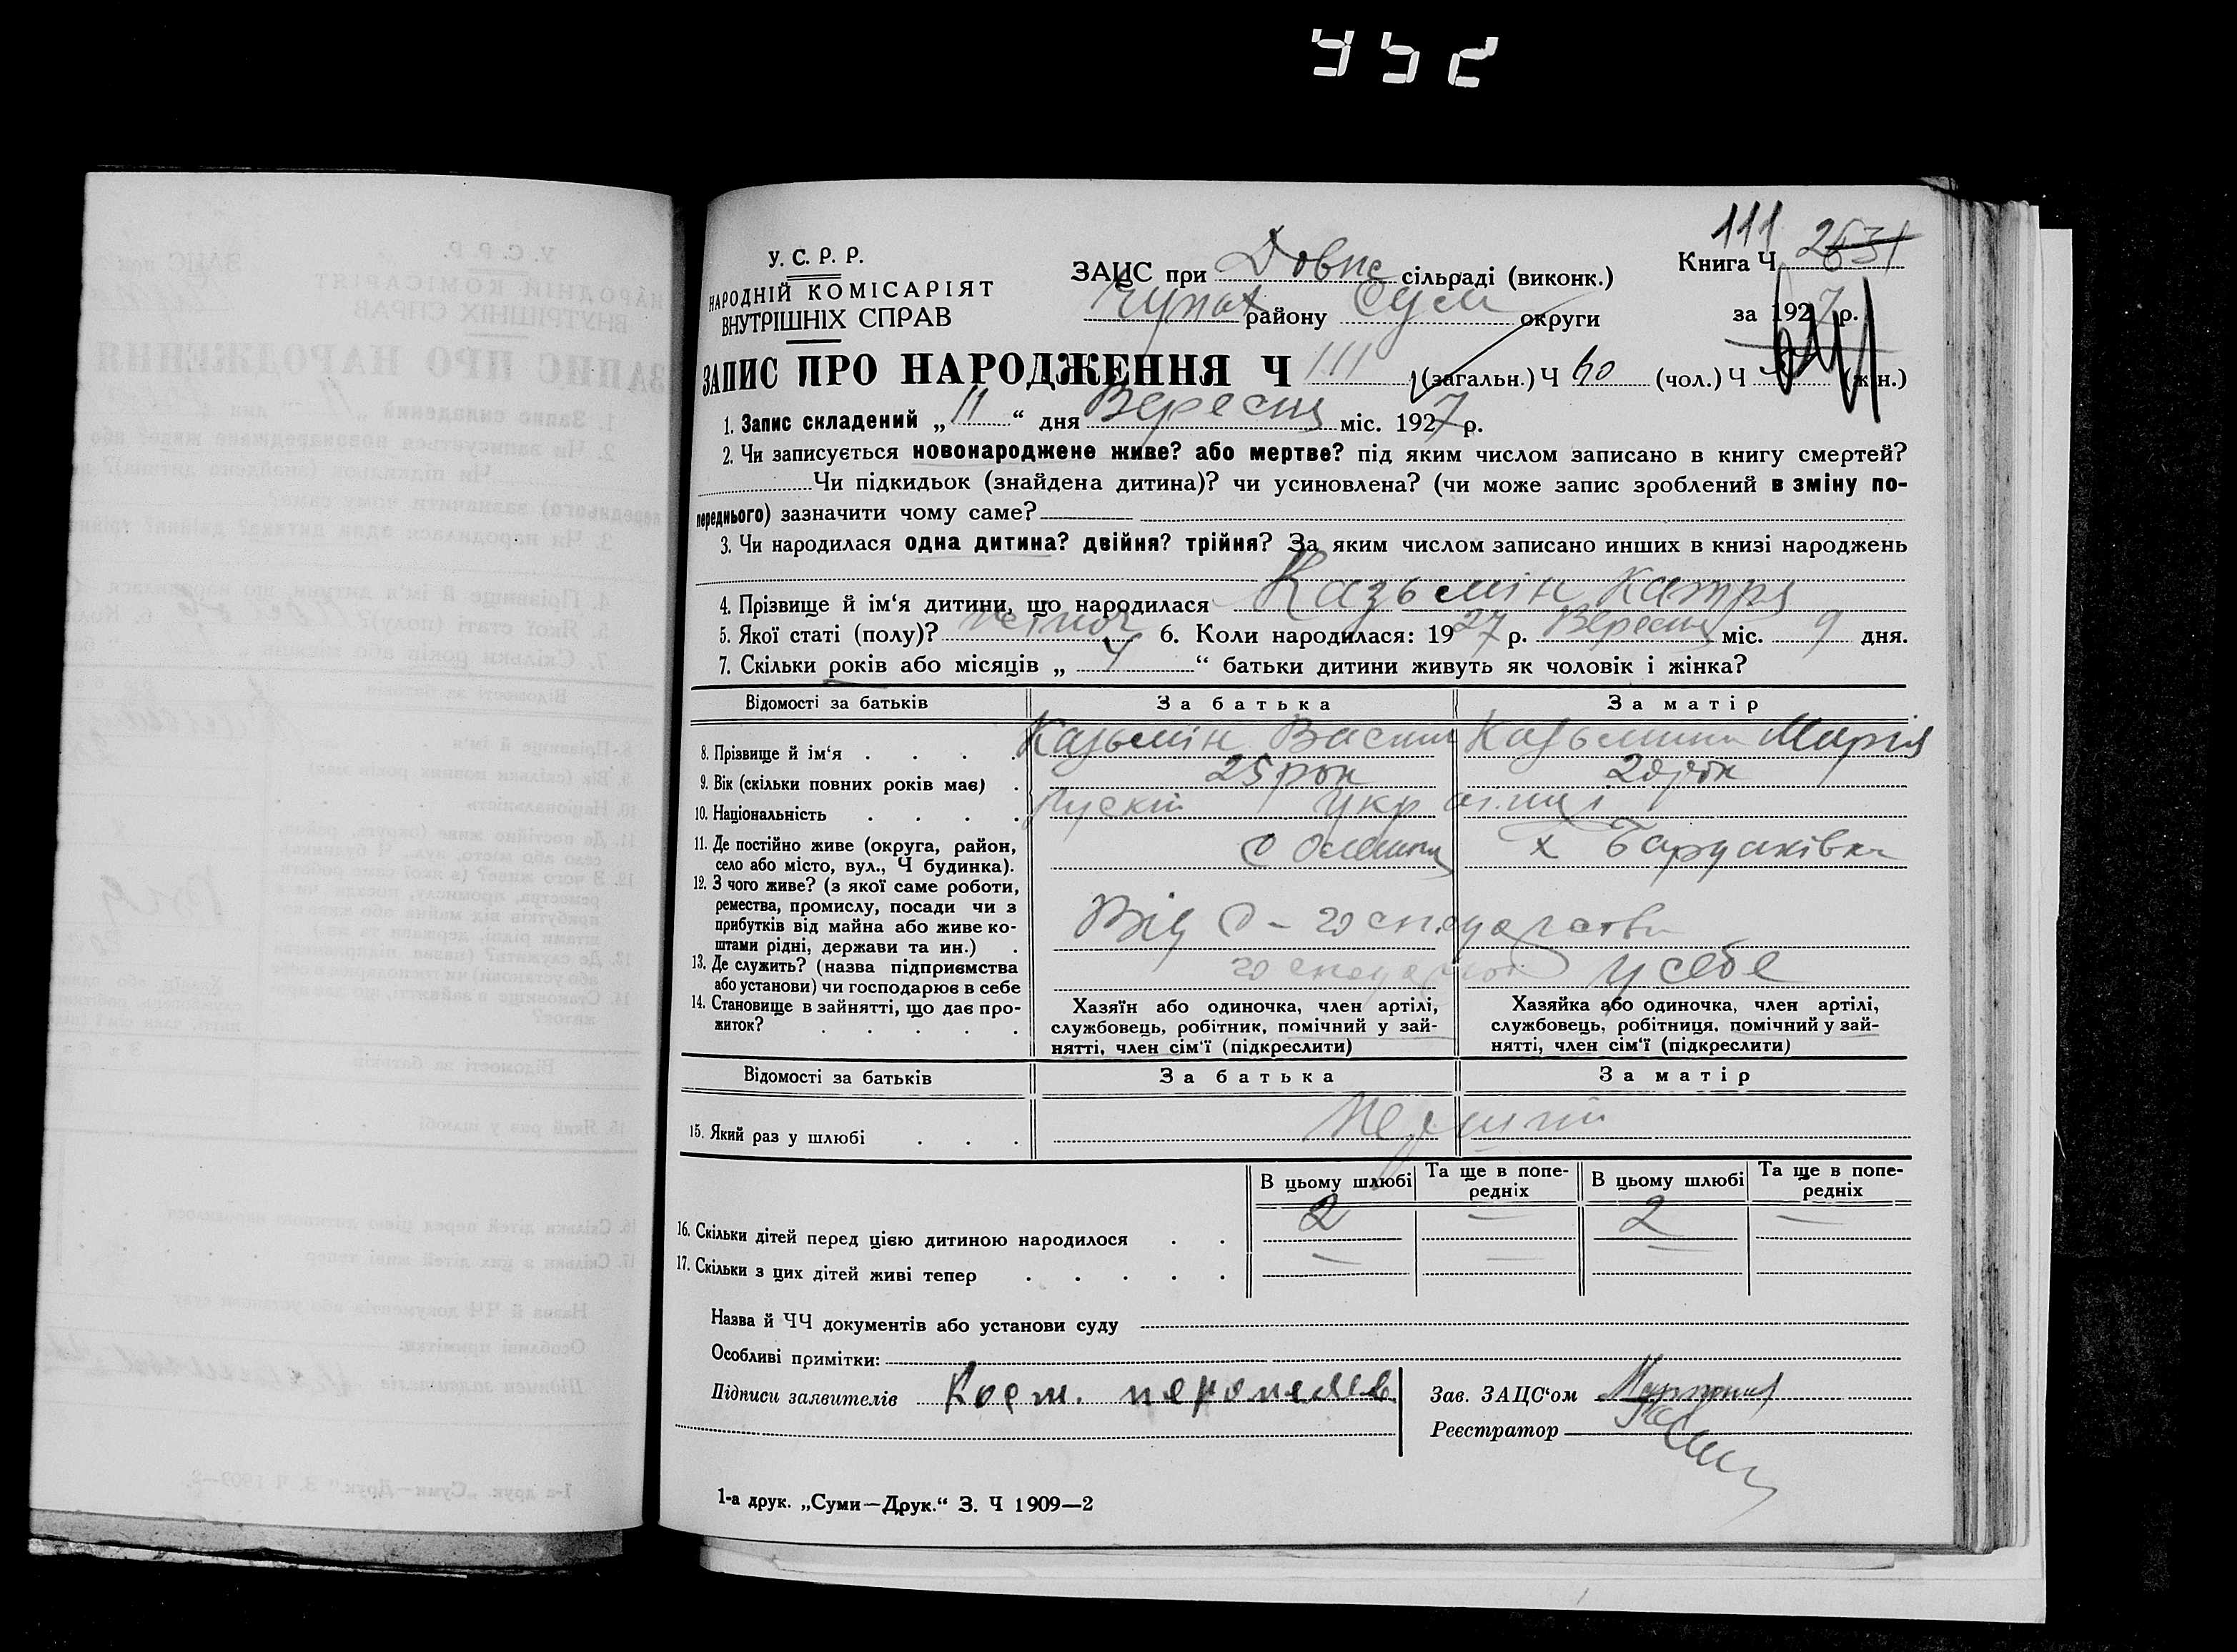 У. С. Р. Р.
НАРОДНІЙ КОМІСАРІЯТ
ВНУТРІШНІХ СПРАВ
ЗАЦС при сільраді (виконк.)
району Сум округи
111
Книга Ч. 2631
за 1927 р.
ЗАПИС ПРО НАРОДЖЕННЯ Ч 111 (загальн.) Ч 60 (чол.) Ч (жін.)
1. Запис складений „ 11 “ дня Вересня міс. 1927 р.
2. Чи записується новонароджене живе? або мертве? під яким числом записано в книгу смертей?
Чи підкидьок (знайдена дитина)? чи усиновлена? (чи може запис зроблений в зміну по-
переднього) зазначити чому саме?
3. Чи народилася одна дитина? двійня? трійня? За яким числом записано инших в книзі народжень
4. Прізвище й ім‘я дитини, що народилася Казьмін Катря
5. Якої статі (полу)? 6. Коли народилася: 1927 р. Вересня міс. 9 дня.
7. Скільки років або місяців „ 4 “ батьки дитини живуть як чоловік і жінка?
Відомості за батьків За батька За матір
8. Прізвище й ім‘я . . . . Казьмін Васил Казьмина Марія
9. Вік (скільки повних років має) . 25 рок
10. Національність . . . .
11. Де постійно живе (округа, район,
село або місто, вул., Ч будинка).
12. З чого живе? (з якої саме роботи,
ремества, промислу, посади чи з
прибутків від майна або живе ко-
штами рідні, держави та ин.) .
Від с-господарства
13. Де служить? (назва підприємства
або установи) чи господарює в себе
у себе
14. Становище в зайнятті, що дає про-
житок? . . . . .
Хазяїн або одиночка, член артілі,
службовець, робітник, помічний у зай-
нятті, член сім‘ї (підкреслити)
Хазяйка або одиночка, член артілі,
службовець, робітниця, помічний у зай-
нятті, член сім‘ї (підкреслити)
Відомості за батьків За батька За матір
15. Який раз у шлюбі . . .
В цьому шлюбі Та ще в попе-
редніх В цьому шлюбі Та ще в попе-
редніх
16. Скільки дітей перед цією дитиною народилося . . 2 — 2 —
17. Скільки з цих дітей живі тепер . . . . . — — —
Назва й ЧЧ документів або установи суду
Особливі примітки:
Підписи заявителів
Зав. ЗАЦС‘ом
Реєстратор
1-а друк. „Суми—Друк.“ З. Ч 1909—2